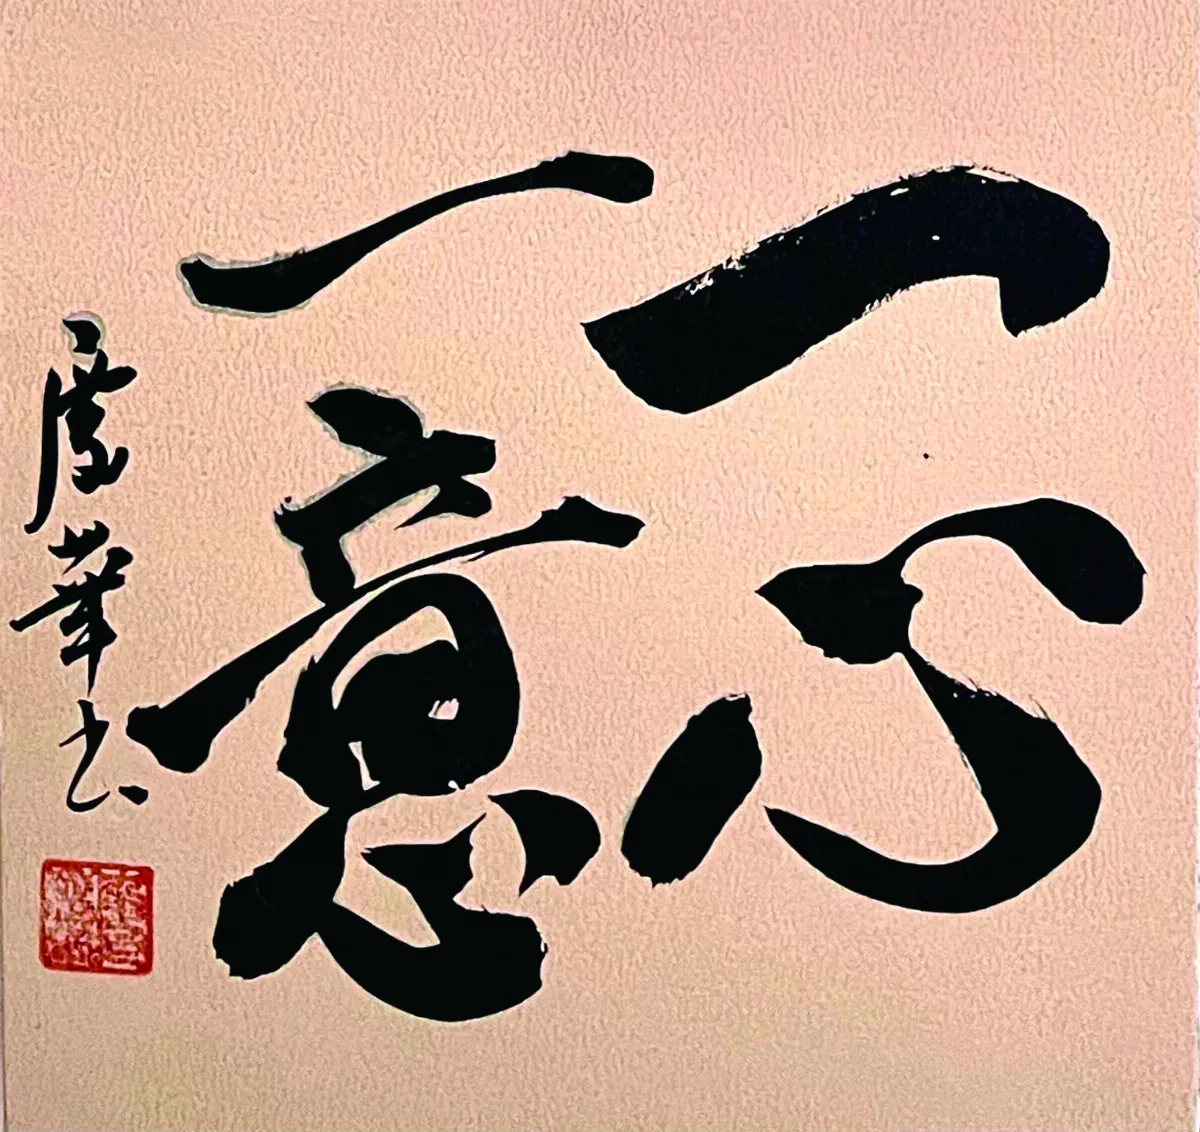 一心
一意
華书